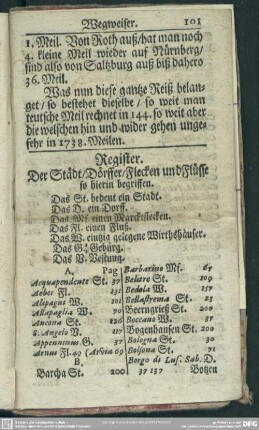 Wegweiser. 101
1. Meil. Von Roth auß/hat man noch
4. kleine Meil wieder auf Nürnberg/
sind also von Saltzburg auß biß dahero
36. Meil.
Was nun diese gantze Reiß belan-
get/ so bestehet dieselbe/ so weit man
teutsche Meil rechnet in 144. so weit aber
die welschen hin und wider gehen unge-
fehr in 1738. Meilen.
Register.
Der Städt/Dörffer/Flecken und Flüsse
so hierin begriffen.
Das St. bedeut ein Stadt.
Das D. ein Dorff.
Das Mf. einen Marcktflecken.
Das Fl. einen Fluß.
Das W. eintzig gelegene Wirthshäuser.
Das G. Gebürg.
Das V. Vestung.
A, Pag
Acquapendente St. 37
Aebos Fl. 131
Alipagne W. 101
Allapaglia W. 70
Ancona St. 126
S. Angelo V. 117
Appenninus G. 37
Arnus Fl. 49 (Arvia 69
B,
Barcha St. 200
Barbarino Mf. 67
Belitre St. 109
Bedola W. 157
Bellastrema St. 23
Beerngrieß St. 200
Boccano W. 37
Bogenhausen St. 200
Bologna St. 30
Bolsona St. 71
Borgo di Luf. Sab. D.
37 137 Botzen